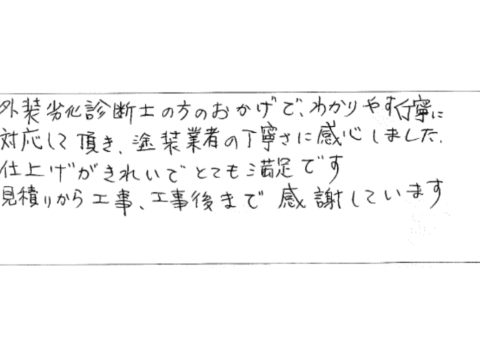 外装劣化診断士の方のおかげで、わかりやすく丁寧に
対応して頂き、塗装業者の丁寧さに感心しました。
仕上げがきれいでとても満足です
見積りから工事、工事後まで感謝しています